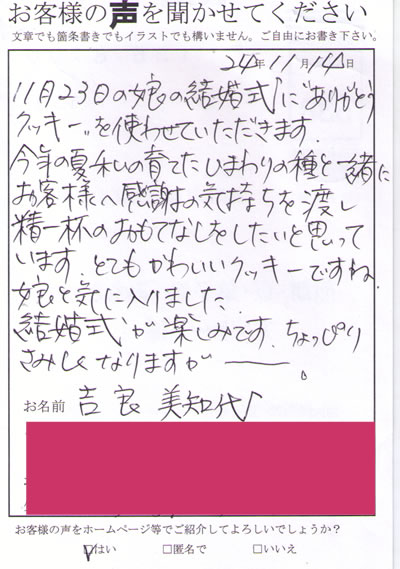 お客様の声を聞かせてください
文章でも箇条書きでもイラストでも構いません。ご自由にお書き下さい。
24年11月14日
11月23日の娘の結婚式に"ありがとう
クッキー"を使わせていただきます.
今年の夏私の育てたひまわりの種と一緒に
お客様へ感謝の気持ちを渡し
精一杯のおもてなしをしたいと思って
います.とてもかわいいクッキーですね.
娘と気に入りました.
結婚式が楽しみです.ちょっぴり
さみしくなりますが――。
お名前 吉良 美知代♪
お客様の声をホームページ等でご紹介してよろしいでしょうか?
□はい □匿名で □いいえ